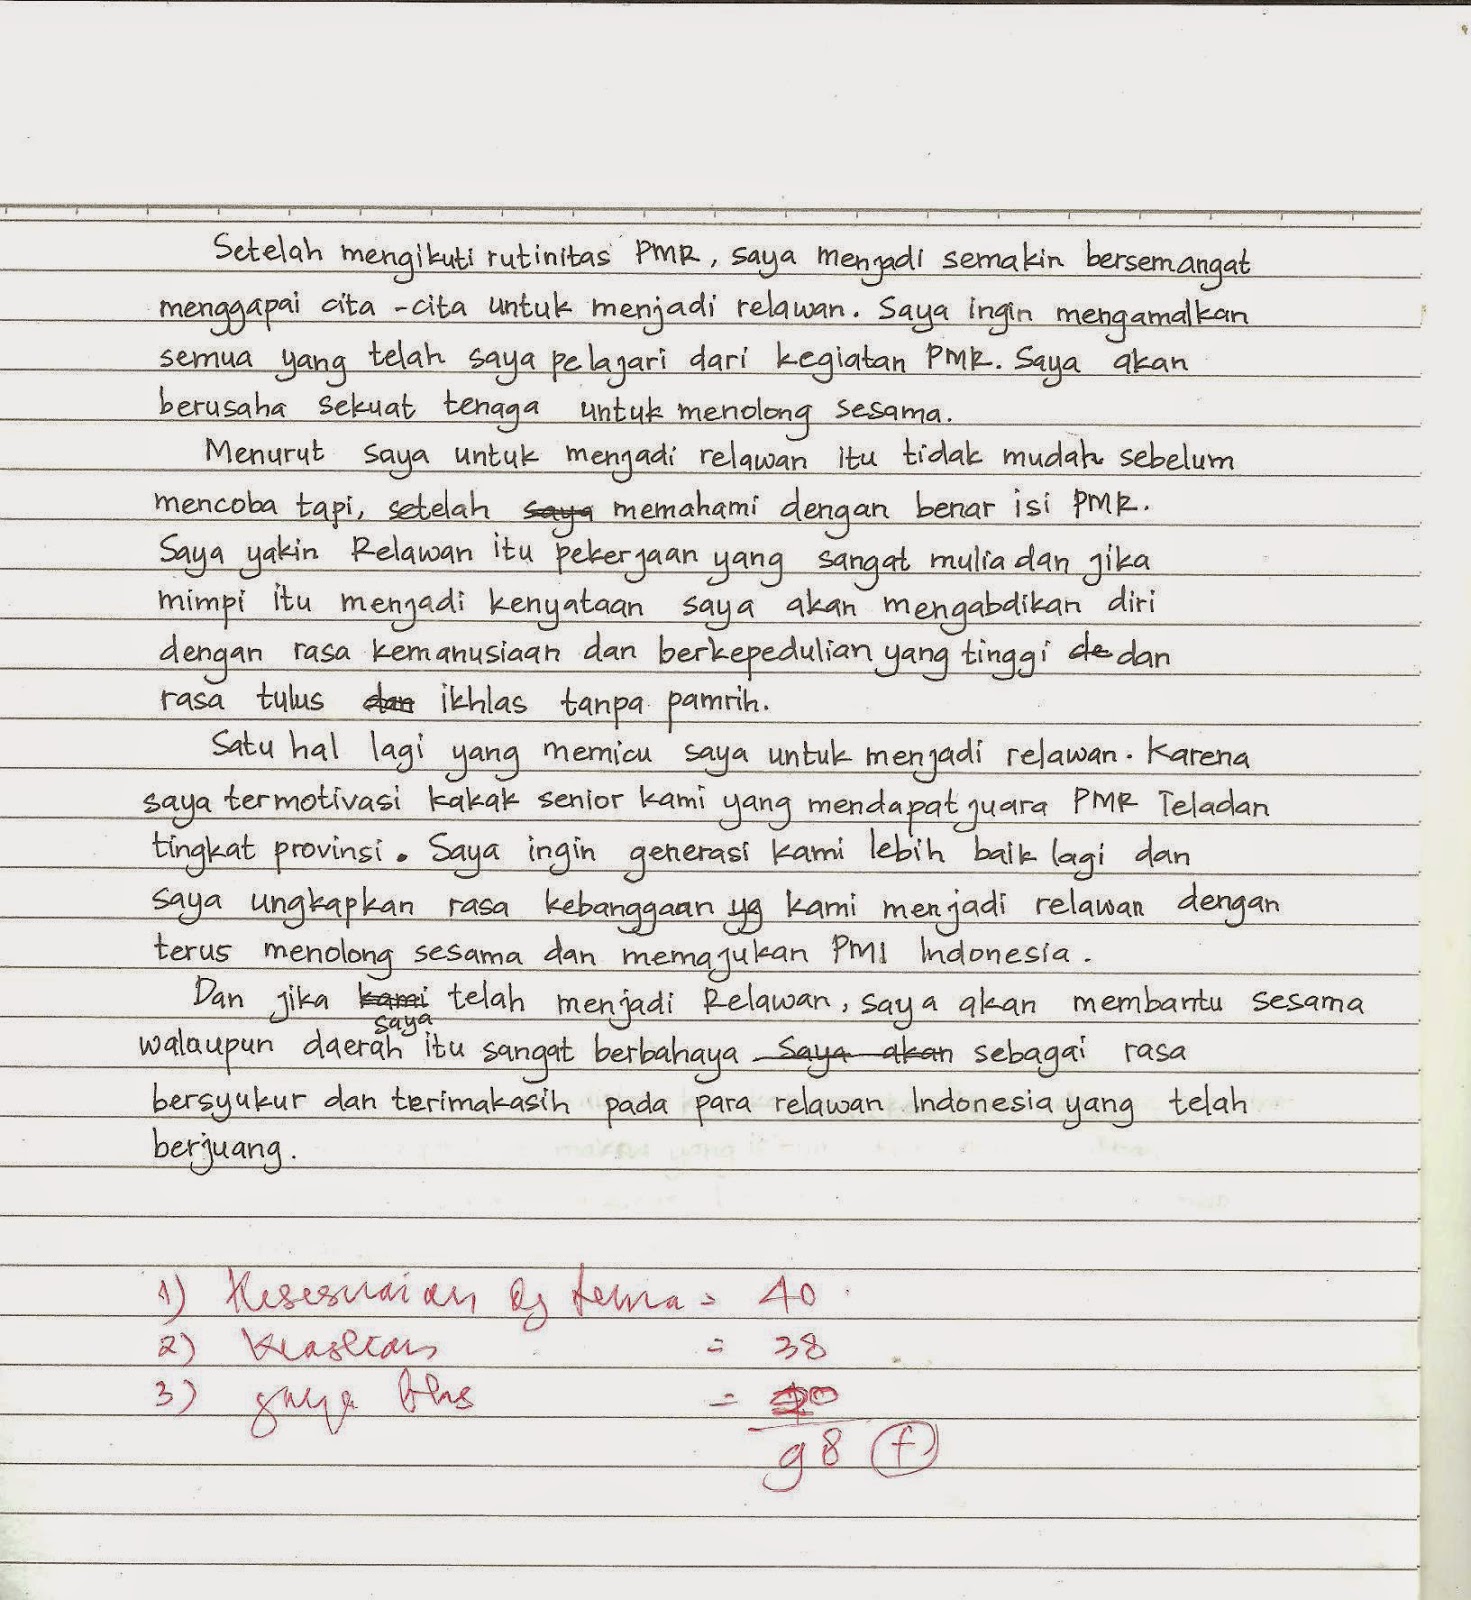 Setelah mengikuti rutinitas PMR, saya menjadi semakin bersemangat
menggapai cita-cita untuk menjadi relawan. Saya ingin mengamalkan
semua yang telah saya pelajari dari kegiatan PMR. Saya akan
berusaha sekuat tenaga untuk menolong sesama.
Menurut saya untuk menjadi relawan itu tidak mudah sebelum
mencoba tapi, setelah saya memahami dengan benar isi PMR.
Saya yakin Relawan itu pekerjaan yang sangat mulia dan jika
mimpi itu menjadi kenyataan saya akan mengabdikan diri
dengan rasa kemanusiaan dan berkepedulian yang tinggi de dan
rasa tulus dan ikhlas tanpa pamrih.
Satu hal lagi yang memicu saya untuk menjadi relawan. Karena
saya termotivasi kakak senior kami yang mendapat juara PMR Teladan
tingkat provinsi. Saya ingin generasi kami lebih baik lagi dan
saya ungkapkan rasa kebanggaan yg kami menjadi relawan dengan
terus menolong sesama dan memajukan PMI Indonesia.
Dan jika kami telah menjadi Relawan, saya akan membantu sesama
saya
walaupun daerah itu sangat berbahaya Saya akan sebagai rasa
bersyukur dan terimakasih pada para relawan Indonesia yang telah
berjuang.
1) Kesesuaian dg tema = 40
2) Keaslian = 38
3) gaya bhs = 20
98 (f)